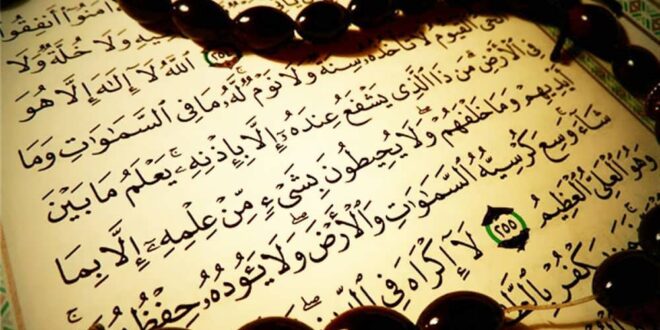 ءَامَنُوٓا۟ أَنفِقُوا۟
وَلَا خُلَّةٌ وَلَا
٢٥٤ ٱللَّهُ لَآ إِلَٰهَ إِلَّا هُوَ
ٱلْقَيُّومُ لَا تَأْخُذُهُۥ سِنَةٌ وَلَا نَوْمٌ لَّهُۥ مَا فِى ٱلسَّمَٰوَٰتِ وَمَا
فِى ٱلْأَرْضِ مَن ذَا ٱلَّذِى يَشْفَعُ عِندَهُۥٓ إِلَّا بِإِذْنِهِۦ يَعْلَمُ مَا بَيْنَ
أَيْدِيهِمْ وَمَا خَلْفَهُمْ وَلَا يُحِيطُونَ بِشَىْءٍ مِّنْ عِلْمِهِۦٓ إِلَّا بِمَا
شَآءَ وَسِعَ كُرْسِيُّهُ ٱلسَّمَٰوَٰتِ وَٱلْأَرْضَ وَلَا يَـُٔودُهُۥ حِفْظُ
وَهُوَ ٱلْعَلِىُّ ٱلْعَظِيمُ ٢٥٥ لَآ إِكْرَاهَ فِى
يَكْفُرْ